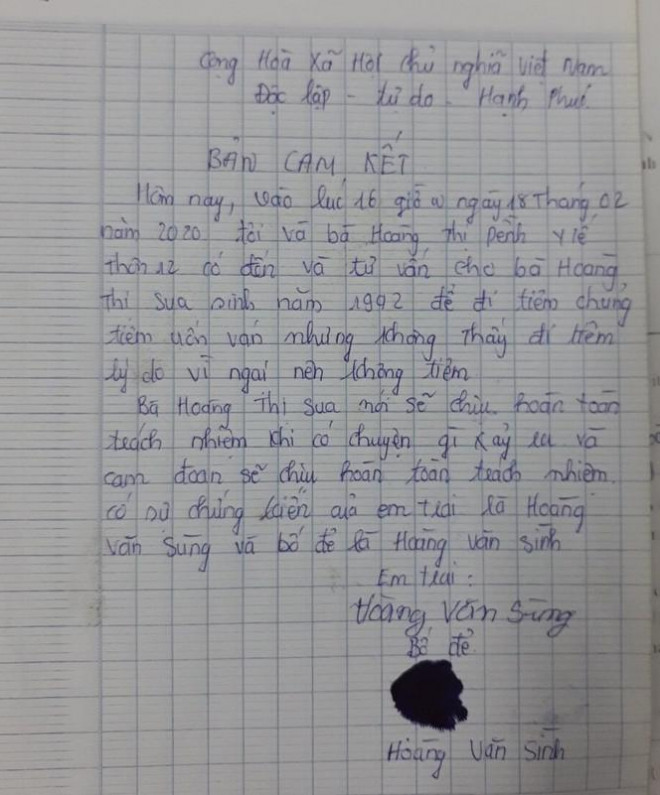 Cộng Hoà Xã Hội chủ nghiã việt Nam
Độc lập - tự do - Hạnh Phúc
BẢN CAM KẾT
Hôm nay, vào lúc 16 giờ ngày 18 Tháng 02
năm 2020 tôi và bà Hoàng Thị pềnh y tế
thôn 12 có đến và tư vấn cho bà Hoàng
Thị Sua sinh năm 1992 để đi tiêm chủng
tiêm uốn ván nhưng không Thấy đi tiêm
lý do vì ngại nên không tiêm
Bà Hoàng Thị Sua nói sẽ chịu hoàn toàn
trách nhiệm khi có chuyện gì xảy ra và
cam đoan sẽ chịu hoàn toàn trách nhiệm.
có sự chứng kiến của em trai là Hoàng
Văn Sùng và bố đẻ là Hoàng văn sính
Em trai :
Hoàng Văn Sùng
Bố đẻ
Hoàng Văn Sính